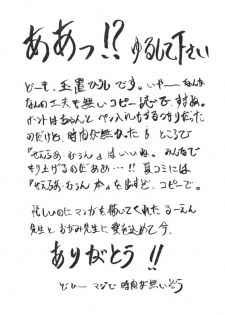 ああっ!! ゆるして下さい
どーも、玉置ひろしです。いやーなんか
なんの工夫も無いコピー誌で、すまぬ。
ホントはちゃんとペン入れもするつもりだった
のだけど、時間が無かった。ところで
はいいね。みんなで
もり上げるのだあぁ…!! 夏コミには
本』を出すぞ、コピーで。
忙しいのにマンガを描いてくれた るーえん
先生と おがみ先生に 愛を込めて今、
ありがとう!!
どひー マジで 時間が無いぞう